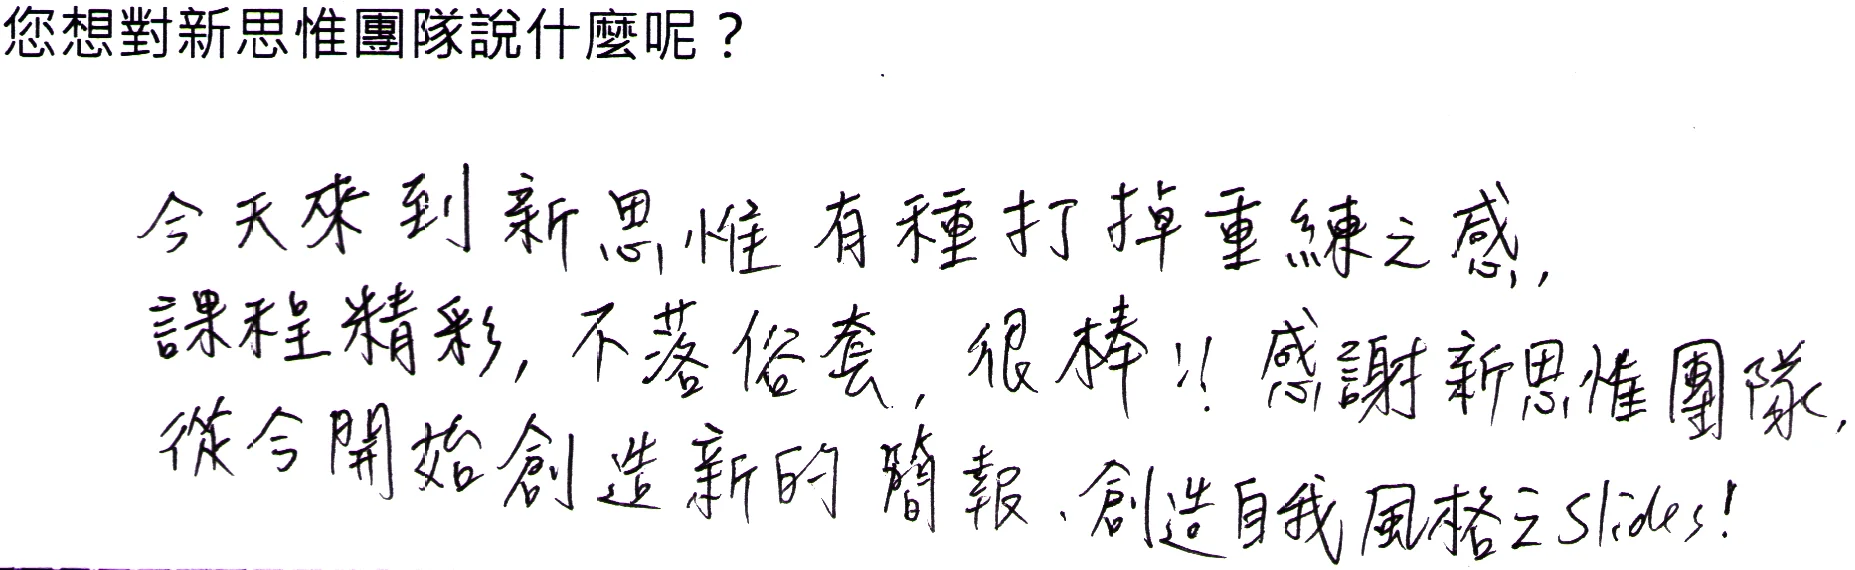 您想對新思惟團隊說什麼呢？
今天來到新思惟有種打掉重練之感,
課程精彩,不落俗套,很棒!! 感謝新思惟團隊,
從今開始創造新的簡報、創造自我風格之slides!